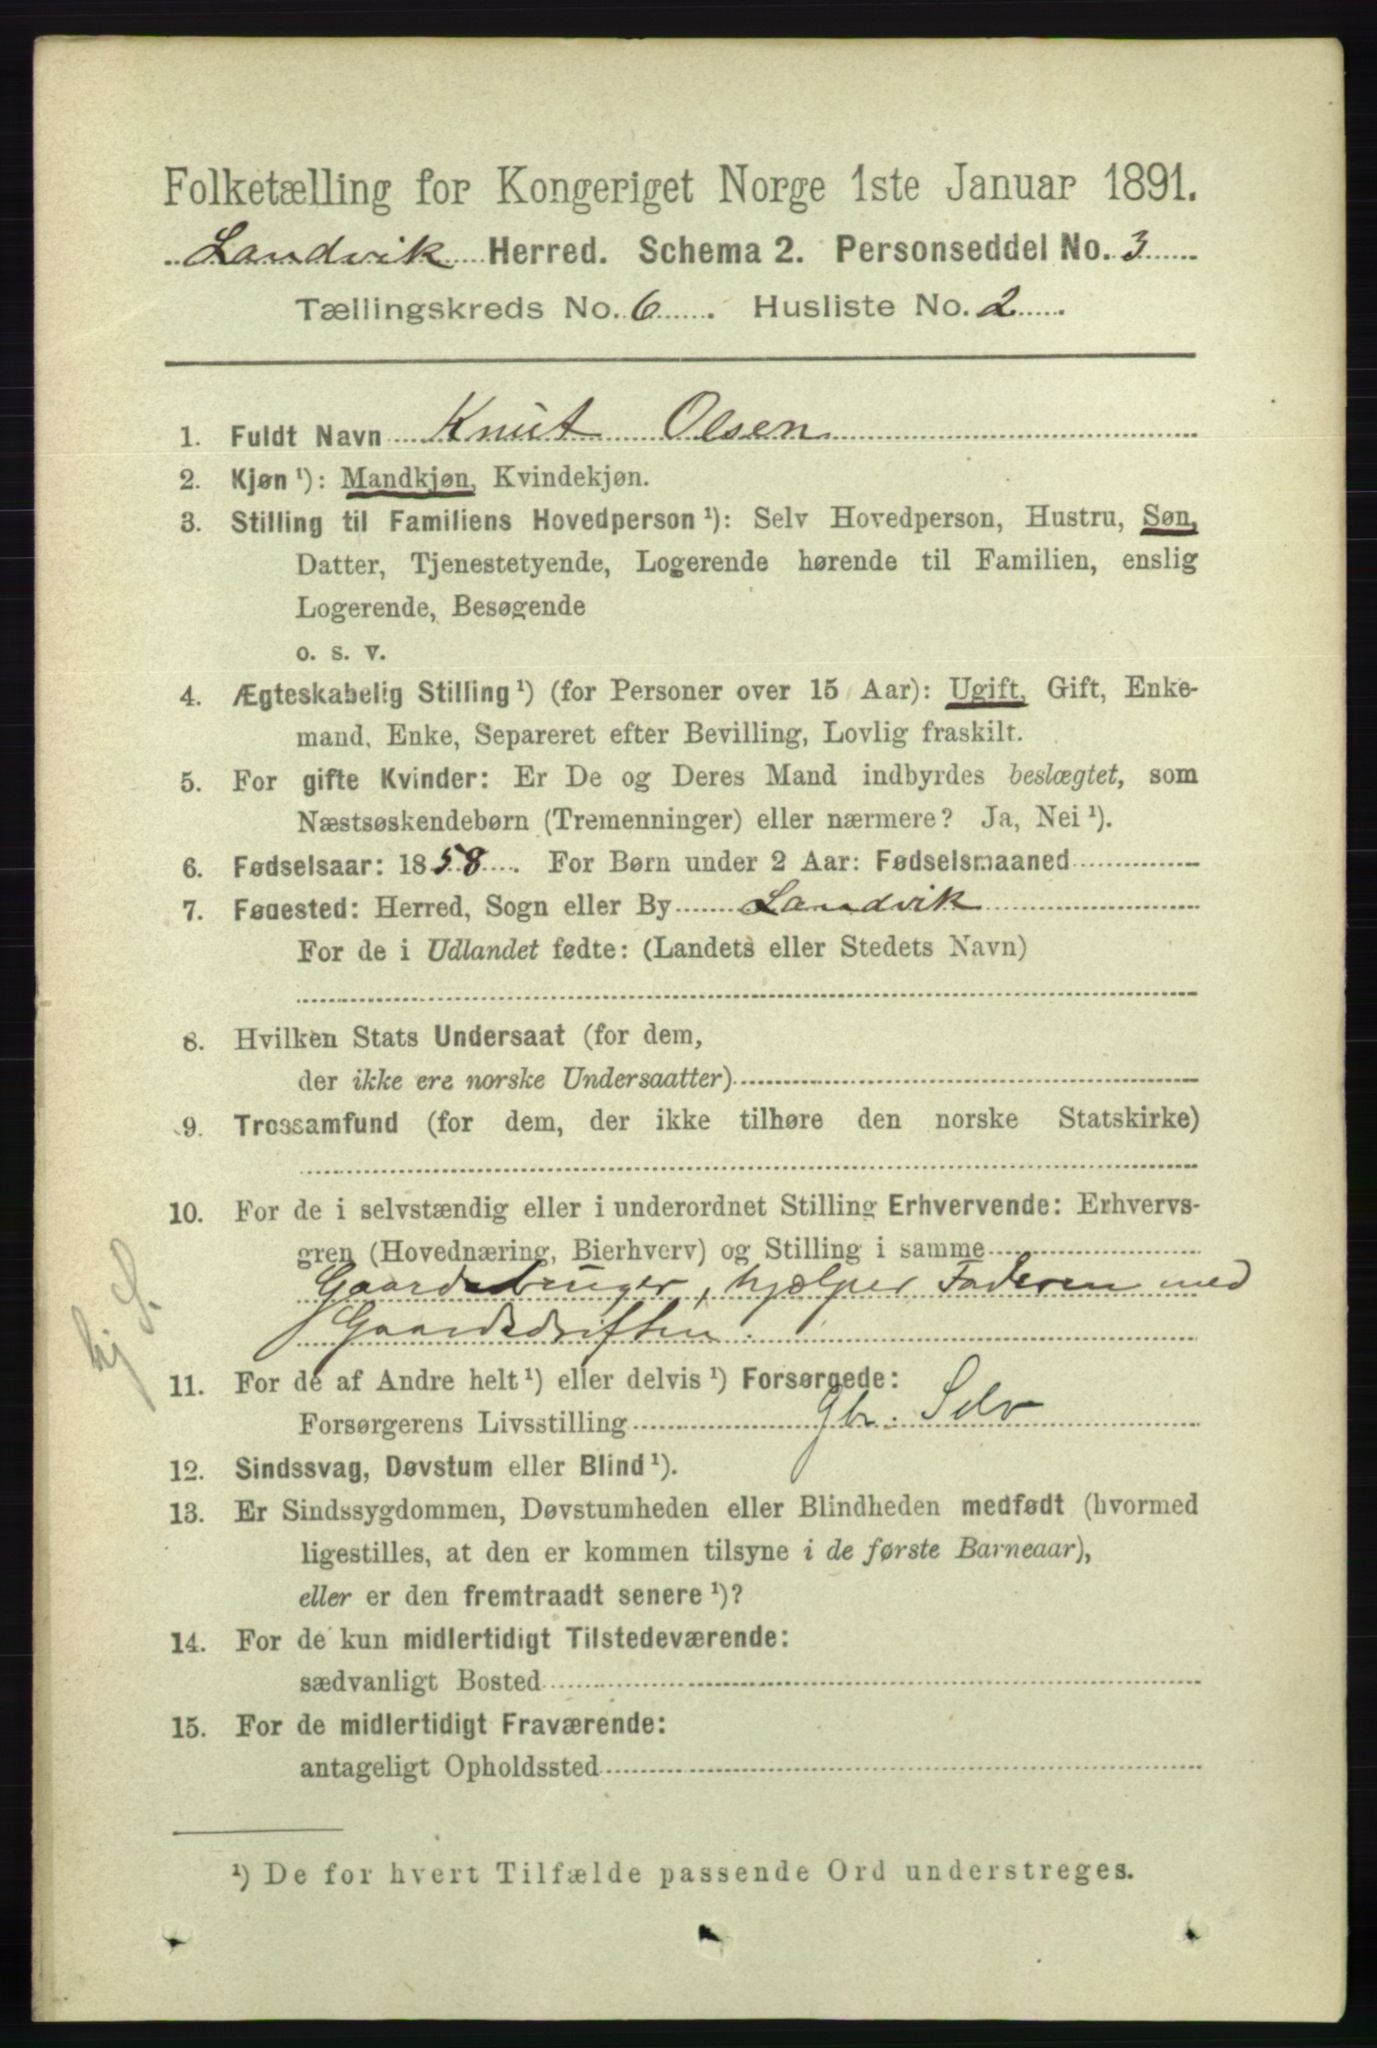 Folketælling for Kongeriget Norge 1ste Januar 1891.
Landvik Herred. Schema 2. Personseddel No. 3
Tællingskreds No. 6. Husliste No. 2.
1. Fuldt Navn Knut Olsen
2. Kjøn ¹): Mandkjøn, Kvindekjøn.
3. Stilling til Familiens Hovedperson ¹): Selv Hovedperson, Hustru, Søn,
Datter, Tjenestetyende, Logerende hørende til Familien, enslig
Logerende, Besøgende
o. s. v.
4. Ægteskabelig Stilling ¹) (for Personer over 15 Aar): Ugift, Gift, Enke-
mand, Enke, Separeret efter Bevilling, Lovlig fraskilt.
5. For gifte Kvinder: Er De og Deres Mand indbyrdes beslægtet, som
Næstsøskendebørn (Tremenninger) eller nærmere? Ja, Nei ¹).
6. Fødselsaar: 1858. For Børn under 2 Aar: Fødselsmaaned
7. Fødested: Herred, Sogn eller By Landvik
For de i Udlandet fødte: (Landets eller Stedets Navn)
8. Hvilken Stats Undersaat (for dem,
der ikke ere norske Undersaatter)
9. Trossamfund (for dem, der ikke tilhøre den norske Statskirke)
10. For de i selvstændig eller i underordnet Stilling Erhvervende: Erhvervs-
gren (Hovednæring, Bierhverv) og Stilling i samme
Gaardsbruger, hjælper Faderen med
Gaardsdriften.
hj S.
11. For de af Andre helt ¹) eller delvis ¹) Forsørgede:
Forsørgerens Livsstilling Gbr. Selv
12. Sindssvag, Døvstum eller Blind ¹).
13. Er Sindssygdommen, Døvstumheden eller Blindheden medfødt (hvormed
ligestilles, at den er kommen tilsyne i de første Barneaar),
eller er den fremtraadt senere ¹)?
14. For de kun midlertidigt Tilstedeværende:
sædvanligt Bosted
15. For de midlertidigt Fraværende:
antageligt Opholdssted
¹) De for hvert Tilfælde passende Ord understreges.